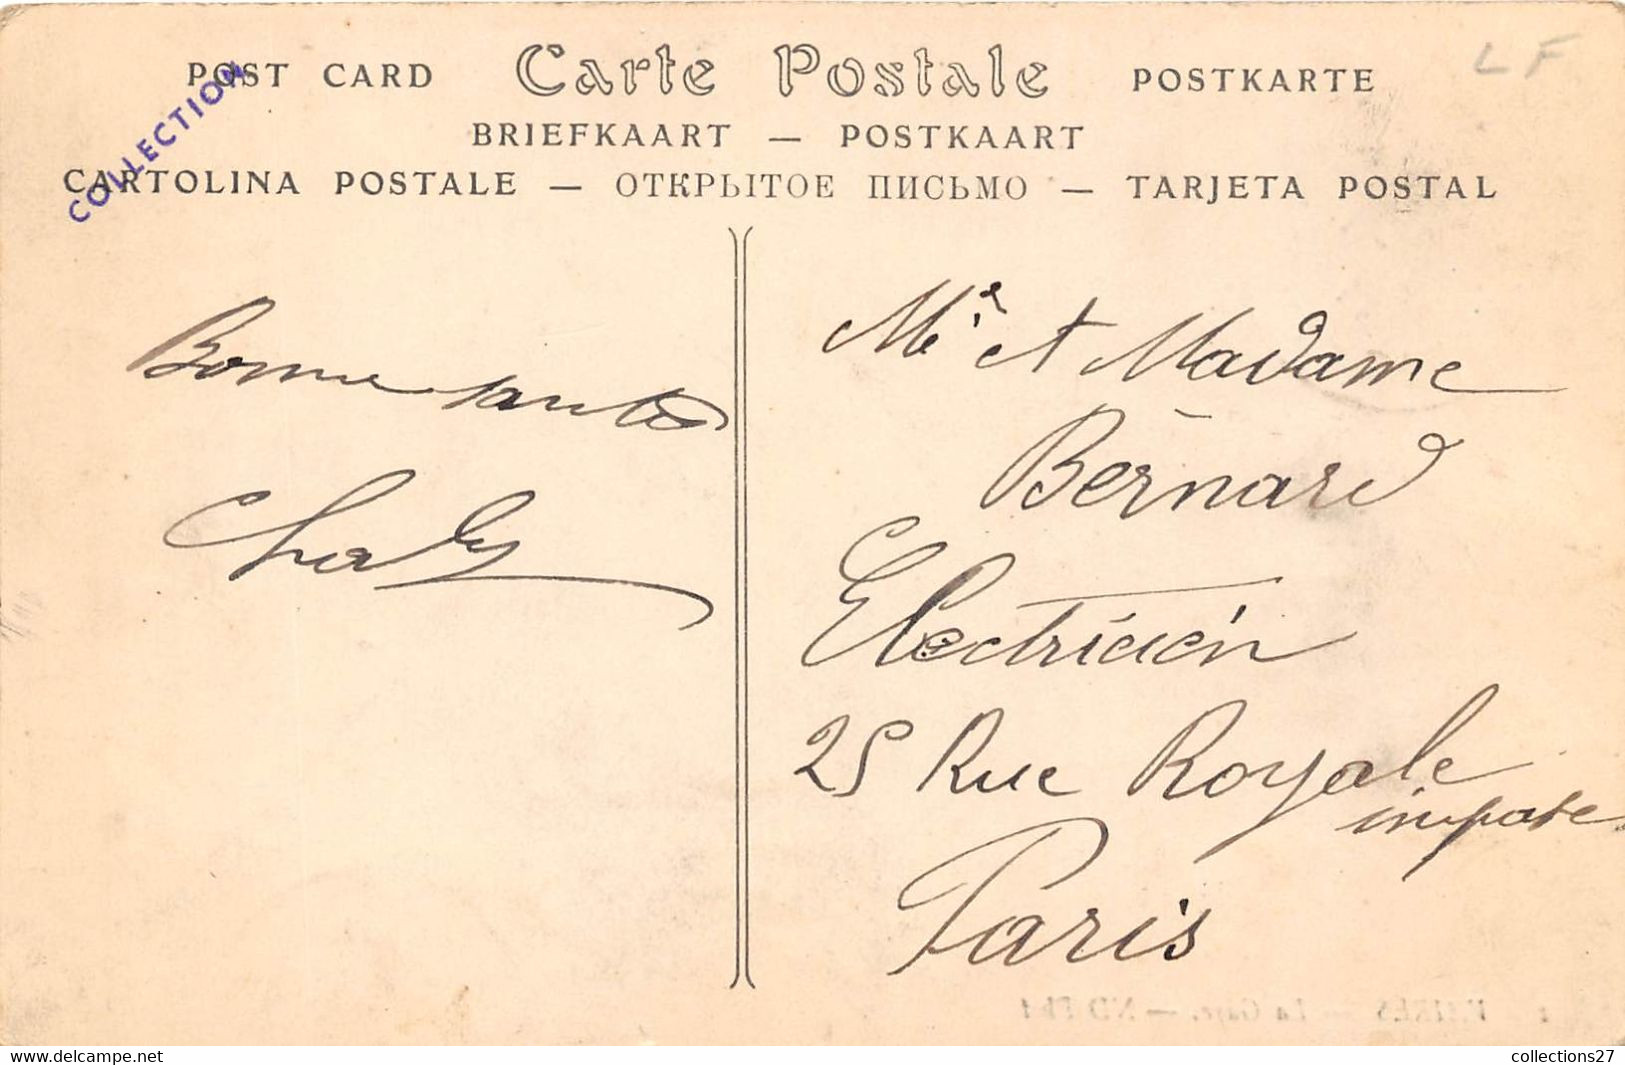 POST CARD Carte Postale POSTKARTE
L F
COLLECTION
BRIEFKAART — POSTKAART
CARTOLINA POSTALE — ОТКРЫТОЕ ПИСЬМО — TARJETA POSTAL
Bonne santé
Mr et Madame
Bernard
Electricien
25 Rue Royale
impasse
Paris
La Gare. — ND Phot
Delcampe.net
collections27